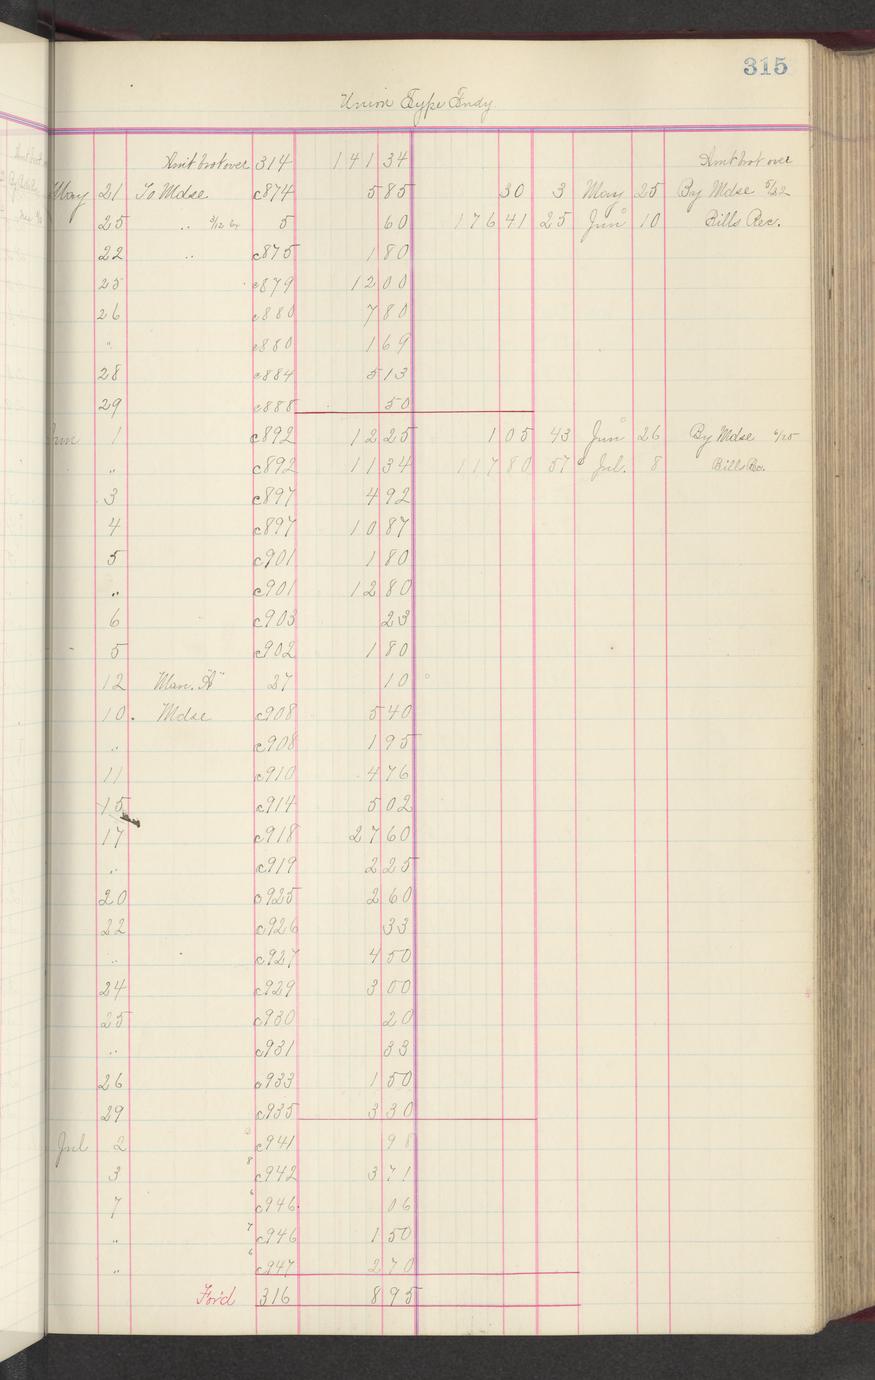 315
Union Type Fndy
Amt brot over 314 141 34 Amt brot over
May 21 To Mdse c874 5 85 30 3 May 25 By Mdse 5/22
25 " 5 60 176 41 25 Jun 10 Bills Rec.
22 " c875 1 80
25 c879 12 00
26 c880 7 80
" c880 1 69
28 c884 5 13
29 c888 50
Jun 1 c892 12 25 1 05 43 Jun 26 By Mdse 6/25
" c892 11 34 117 80 57 Jul. 8 Bills Rec.
3 c897 4 92
4 c897 10 87
5 c901 1 80
" c901 12 80
6 c903 23
5 c902 1 80
12 Man. "A" 27 10
10. Mdse c908 5 40
" c908 1 95
11 c910 4 76
15 c914 5 02
17 c918 27 60
" c919 2 25
20 c925 2 60
22 c926 33
" c927 4 50
24 c929 3 00
25 c930 20
" c931 33
26 c933 1 50
29 c935 3 30
Jul 2 c941 98
3 8 c942 3 71
7 6 c946 06
" 7 c946 1 50
" 6 c947 2 70
For'd 316 8 95